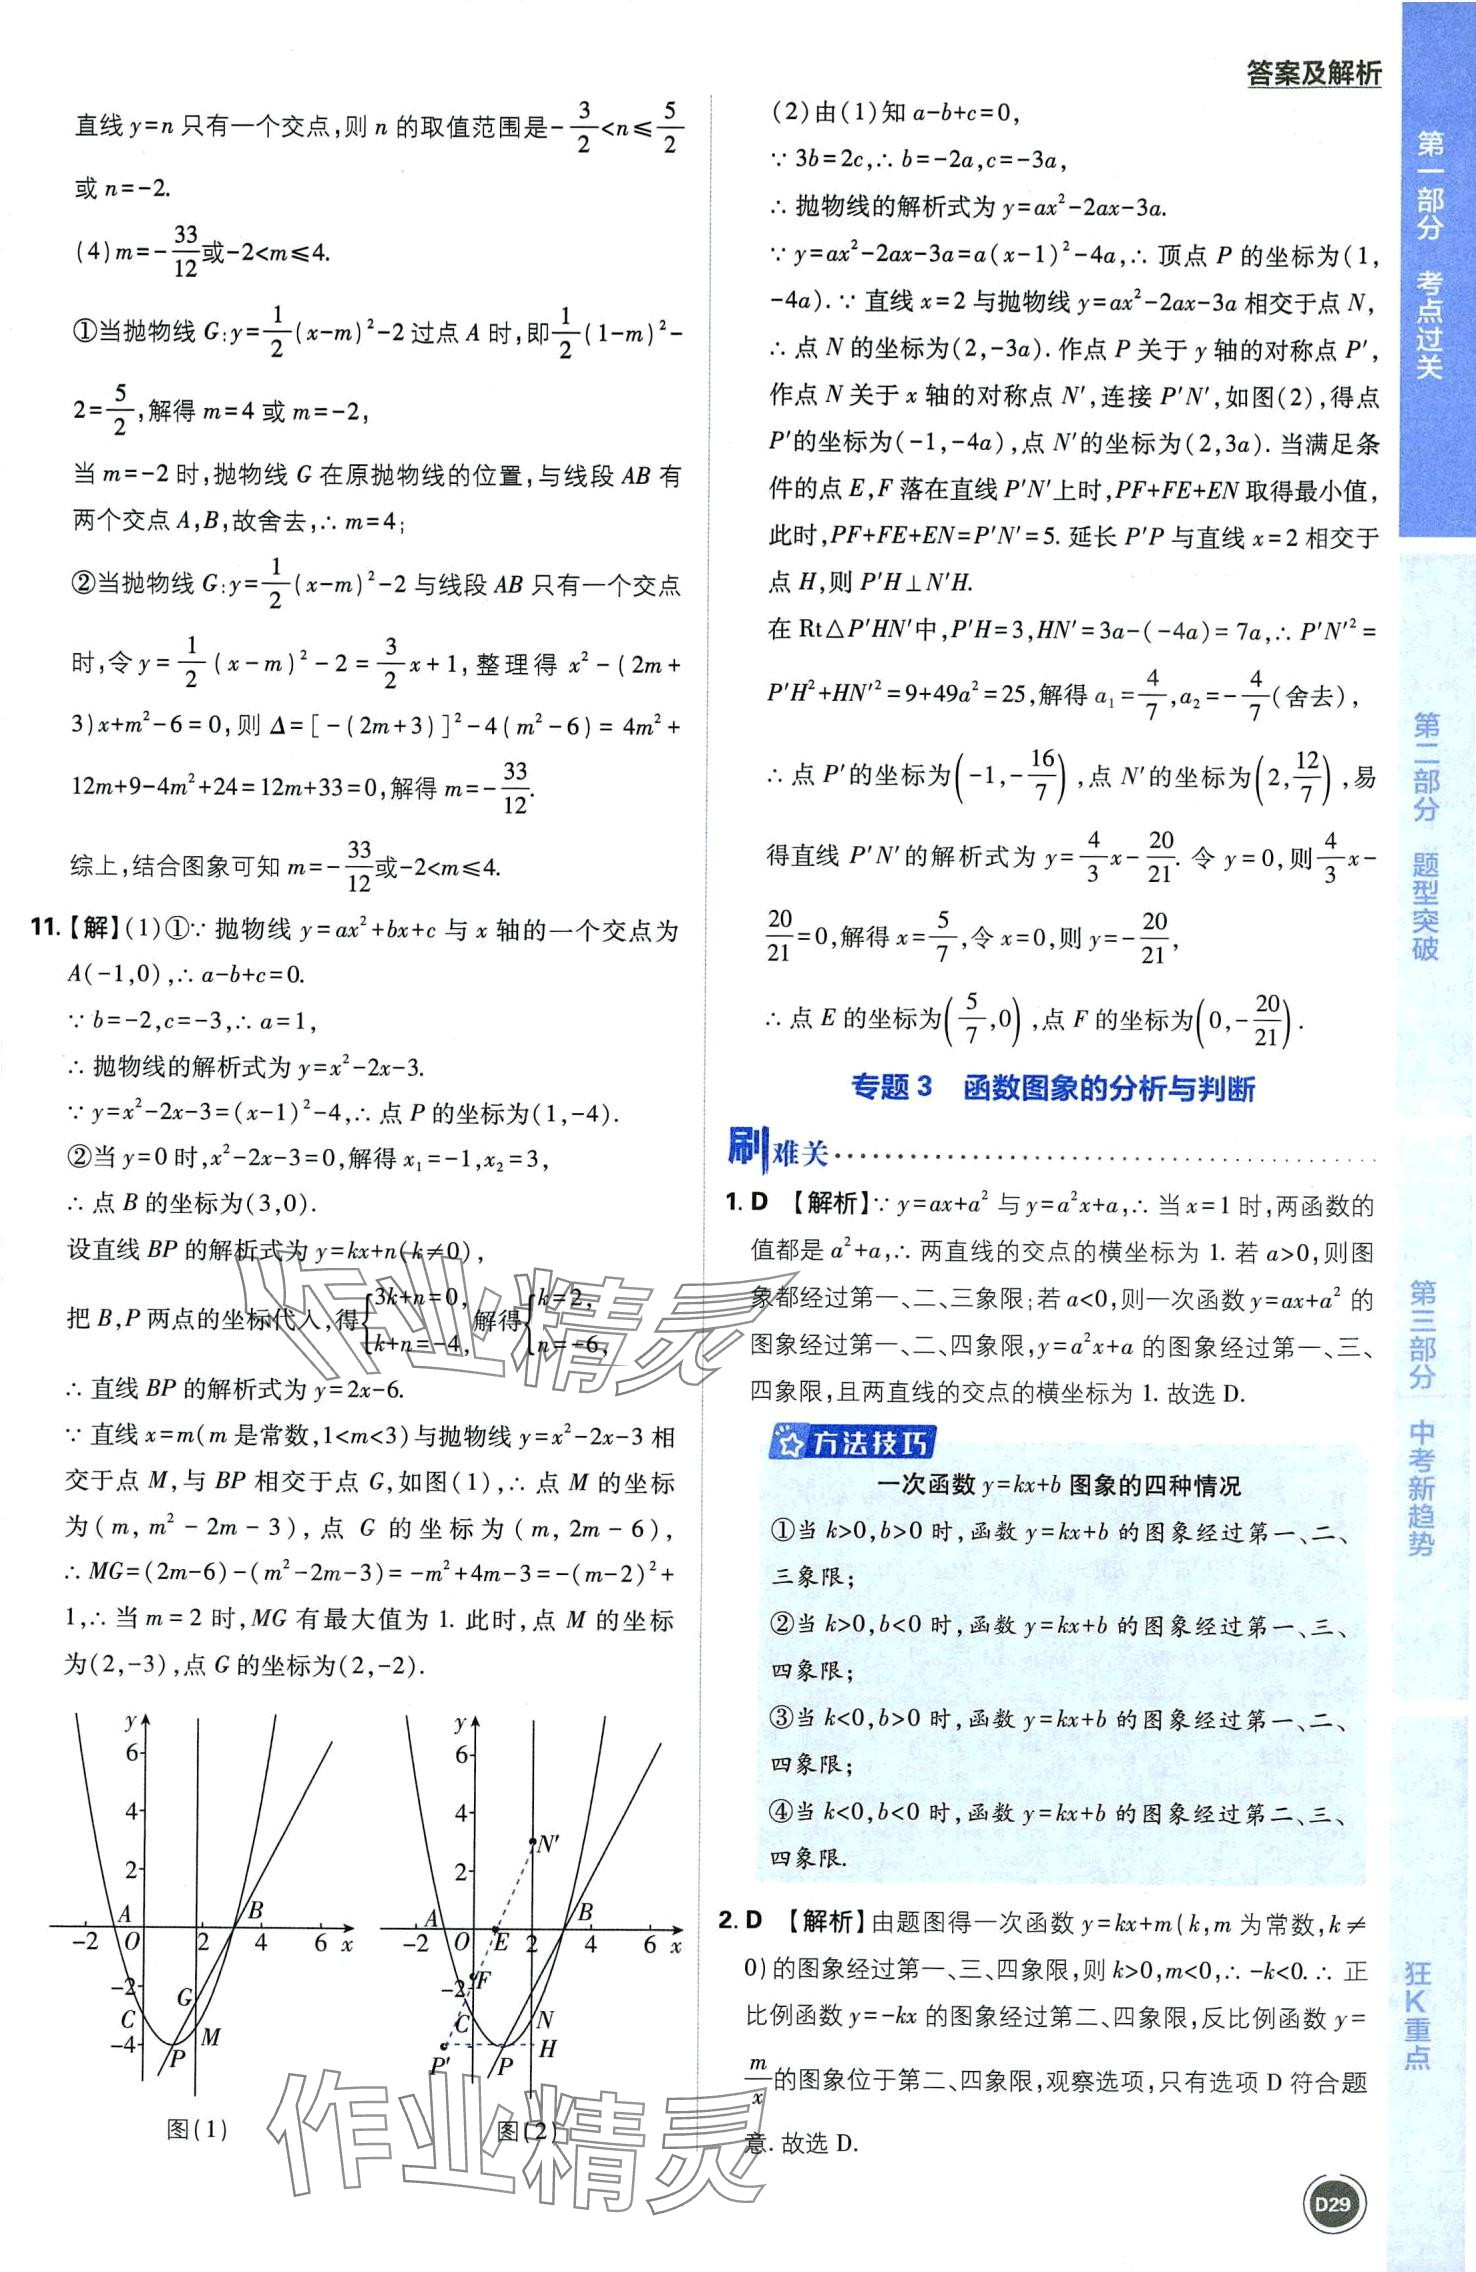 答案及解析
直线 y=n 只有一个交点,则 n 的取值范围是-3/2<n≤5/2
或 n=-2.
(4)m=-33/12或-2<m≤4.
①当抛物线 G:y=1/2(x-m)²-2 过点 A 时,即1/2(1-m)²-
2=5/2,解得 m=4 或 m=-2,
当 m=-2 时,抛物线 G 在原抛物线的位置,与线段 AB 有
两个交点 A,B,故舍去,∴m=4;
②当抛物线 G:y=1/2(x-m)²-2 与线段 AB 只有一个交点
时,令 y=1/2(x-m)²-2=3/2x+1,整理得 x²-(2m+
3)x+m²-6=0,则 Δ=[-(2m+3)]²-4(m²-6)=4m²+
12m+9-4m²+24=12m+33=0,解得 m=-33/12.
综上,结合图象可知 m=-33/12或-2<m≤4.
11.【解】(1)①∵抛物线 y=ax²+bx+c 与 x 轴的一个交点为
A(-1,0),∴a-b+c=0.
∵b=-2,c=-3,∴a=1,
∴抛物线的解析式为 y=x²-2x-3.
∵y=x²-2x-3=(x-1)²-4,∴点 P 的坐标为(1,-4).
②当 y=0 时,x²-2x-3=0,解得 x₁=-1,x₂=3,
∴点 B 的坐标为(3,0).
设直线 BP 的解析式为 y=kx+n(k≠0),
把 B,P 两点的坐标代入,得{3k+n=0, k+n=-4, 解得{k=2, n=-6,
∴直线 BP 的解析式为 y=2x-6.
∵直线 x=m(m 是常数,1<m<3)与抛物线 y=x²-2x-3 相
交于点 M,与 BP 相交于点 G,如图(1),∴点 M 的坐标
为(m,m²-2m-3),点 G 的坐标为(m,2m-6),
∴MG=(2m-6)-(m²-2m-3)=-m²+4m-3=-(m-2)²+
1,∴当 m=2 时,MG 有最大值为 1.此时,点 M 的坐标
为(2,-3),点 G 的坐标为(2,-2).
y
6
4
2
A B
-2 O 2 4 6 x
-2
G
C
M
-4
P
图(1)
y
6
4
N'
2
A B
-2 O E 2 4 6 x
F
-2
C N
P' P H
图(2)
(2)由(1)知 a-b+c=0,
∵3b=2c,∴b=-2a,c=-3a,
∴抛物线的解析式为 y=ax²-2ax-3a.
∵y=ax²-2ax-3a=a(x-1)²-4a,∴顶点 P 的坐标为(1,
-4a).∵直线 x=2 与抛物线 y=ax²-2ax-3a 相交于点 N,
∴点 N 的坐标为(2,-3a).作点 P 关于 y 轴的对称点 P',
作点 N 关于 x 轴的对称点 N',连接 P'N',如图(2),得点
P'的坐标为(-1,-4a),点 N'的坐标为(2,3a).当满足条
件的点 E,F 落在直线 P'N'上时,PF+FE+EN 取得最小值,
此时,PF+FE+EN=P'N'=5.延长 P'P 与直线 x=2 相交于
点 H,则 P'H⊥N'H.
在 Rt△P'HN'中,P'H=3,HN'=3a-(-4a)=7a,∴P'N'²=
P'H²+HN'²=9+49a²=25,解得 a₁=4/7,a₂=-4/7(舍去),
∴点 P'的坐标为(-1,-16/7),点 N'的坐标为(2,12/7),易
得直线 P'N'的解析式为 y=4/3x-20/21.令 y=0,则4/3x-
20/21=0,解得 x=5/7,令 x=0,则 y=-20/21,
∴点 E 的坐标为(5/7,0),点 F 的坐标为(0,-20/21).
专题 3 函数图象的分析与判断
刷难关
1.D 【解析】∵y=ax+a² 与 y=a²x+a,∴当 x=1 时,两函数的
值都是 a²+a,∴两直线的交点的横坐标为 1.若 a>0,则图
象都经过第一、二、三象限;若 a<0,则一次函数 y=ax+a² 的
图象经过第一、二、四象限,y=a²x+a 的图象经过第一、三、
四象限,且两直线的交点的横坐标为 1.故选 D.
方法技巧
一次函数 y=kx+b 图象的四种情况
①当 k>0,b>0 时,函数 y=kx+b 的图象经过第一、二、
三象限;
②当 k>0,b<0 时,函数 y=kx+b 的图象经过第一、三、
四象限;
③当 k<0,b>0 时,函数 y=kx+b 的图象经过第一、二、
四象限;
④当 k<0,b<0 时,函数 y=kx+b 的图象经过第二、三、
四象限.
2.D 【解析】由题图得一次函数 y=kx+m(k,m 为常数,k≠
0)的图象经过第一、三、四象限,则 k>0,m<0,∴-k<0.∴正
比例函数 y=-kx 的图象经过第二、四象限,反比例函数 y=
m/x的图象位于第二、四象限,观察选项,只有选项 D 符合题
意.故选 D.
第一部分 考点过关
第二部分 题型突破
第三部分 中考新趋势
狂K重点
D29
作业精灵
作业精灵